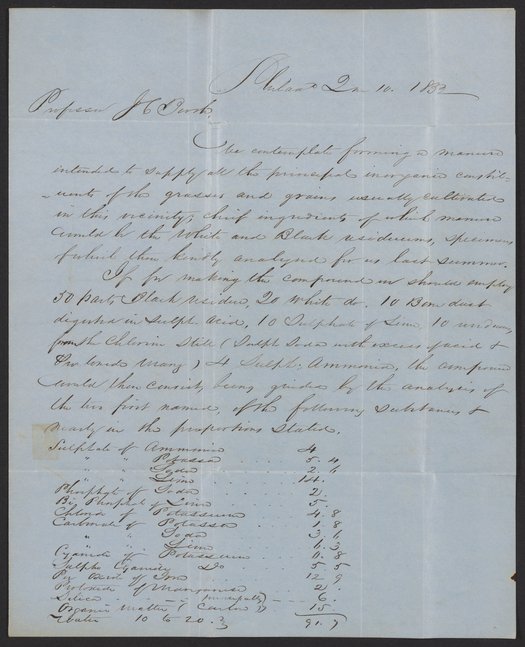 Philada 2m 10. 1852
Professor J C Booth,
We contemplate forming a manure
intended to supply all the principal inorganic constit-
-uents of the grasses and grains usually cultivated
in this vicinity; chief ingredients of which manure
would be the White and Black residuums, specimens
of which thou kindly analyzed for us last summer.
If for making the compound we should employ
50 parts Black residue, 20 White do. 10 Bone dust
digested in Sulph. Acid, 10 Sulphate of Lime, 10 residuum
from the Chlorine Still (Sulph Soda with excess of acid &
Manga) 4 Sulph: Ammonia, the compound
would then consist, being guided by the analysis of
the two first named, of the following substances &
nearly in the proportions stated.
Sulphate of Ammonia 4
" " Potassa 5.4
" " Soda 2.6
" " Lime 14.
Phosphate of Soda 2.
Bi Phosphate of Lime 5
Chloride of Potassium 4.8
Carbonate of Potassa 1.8
" " Soda 3.6
" " Lime 6.3
Cyanide of Potassium 0.8
Sulpho Cyanide Do 5.5
Per Oxide of Iron 12.9
Protoxide of Manganese 2.
Silica 6.
Organic Matter (Carbon) 15
Water 10 to 20.
91.7